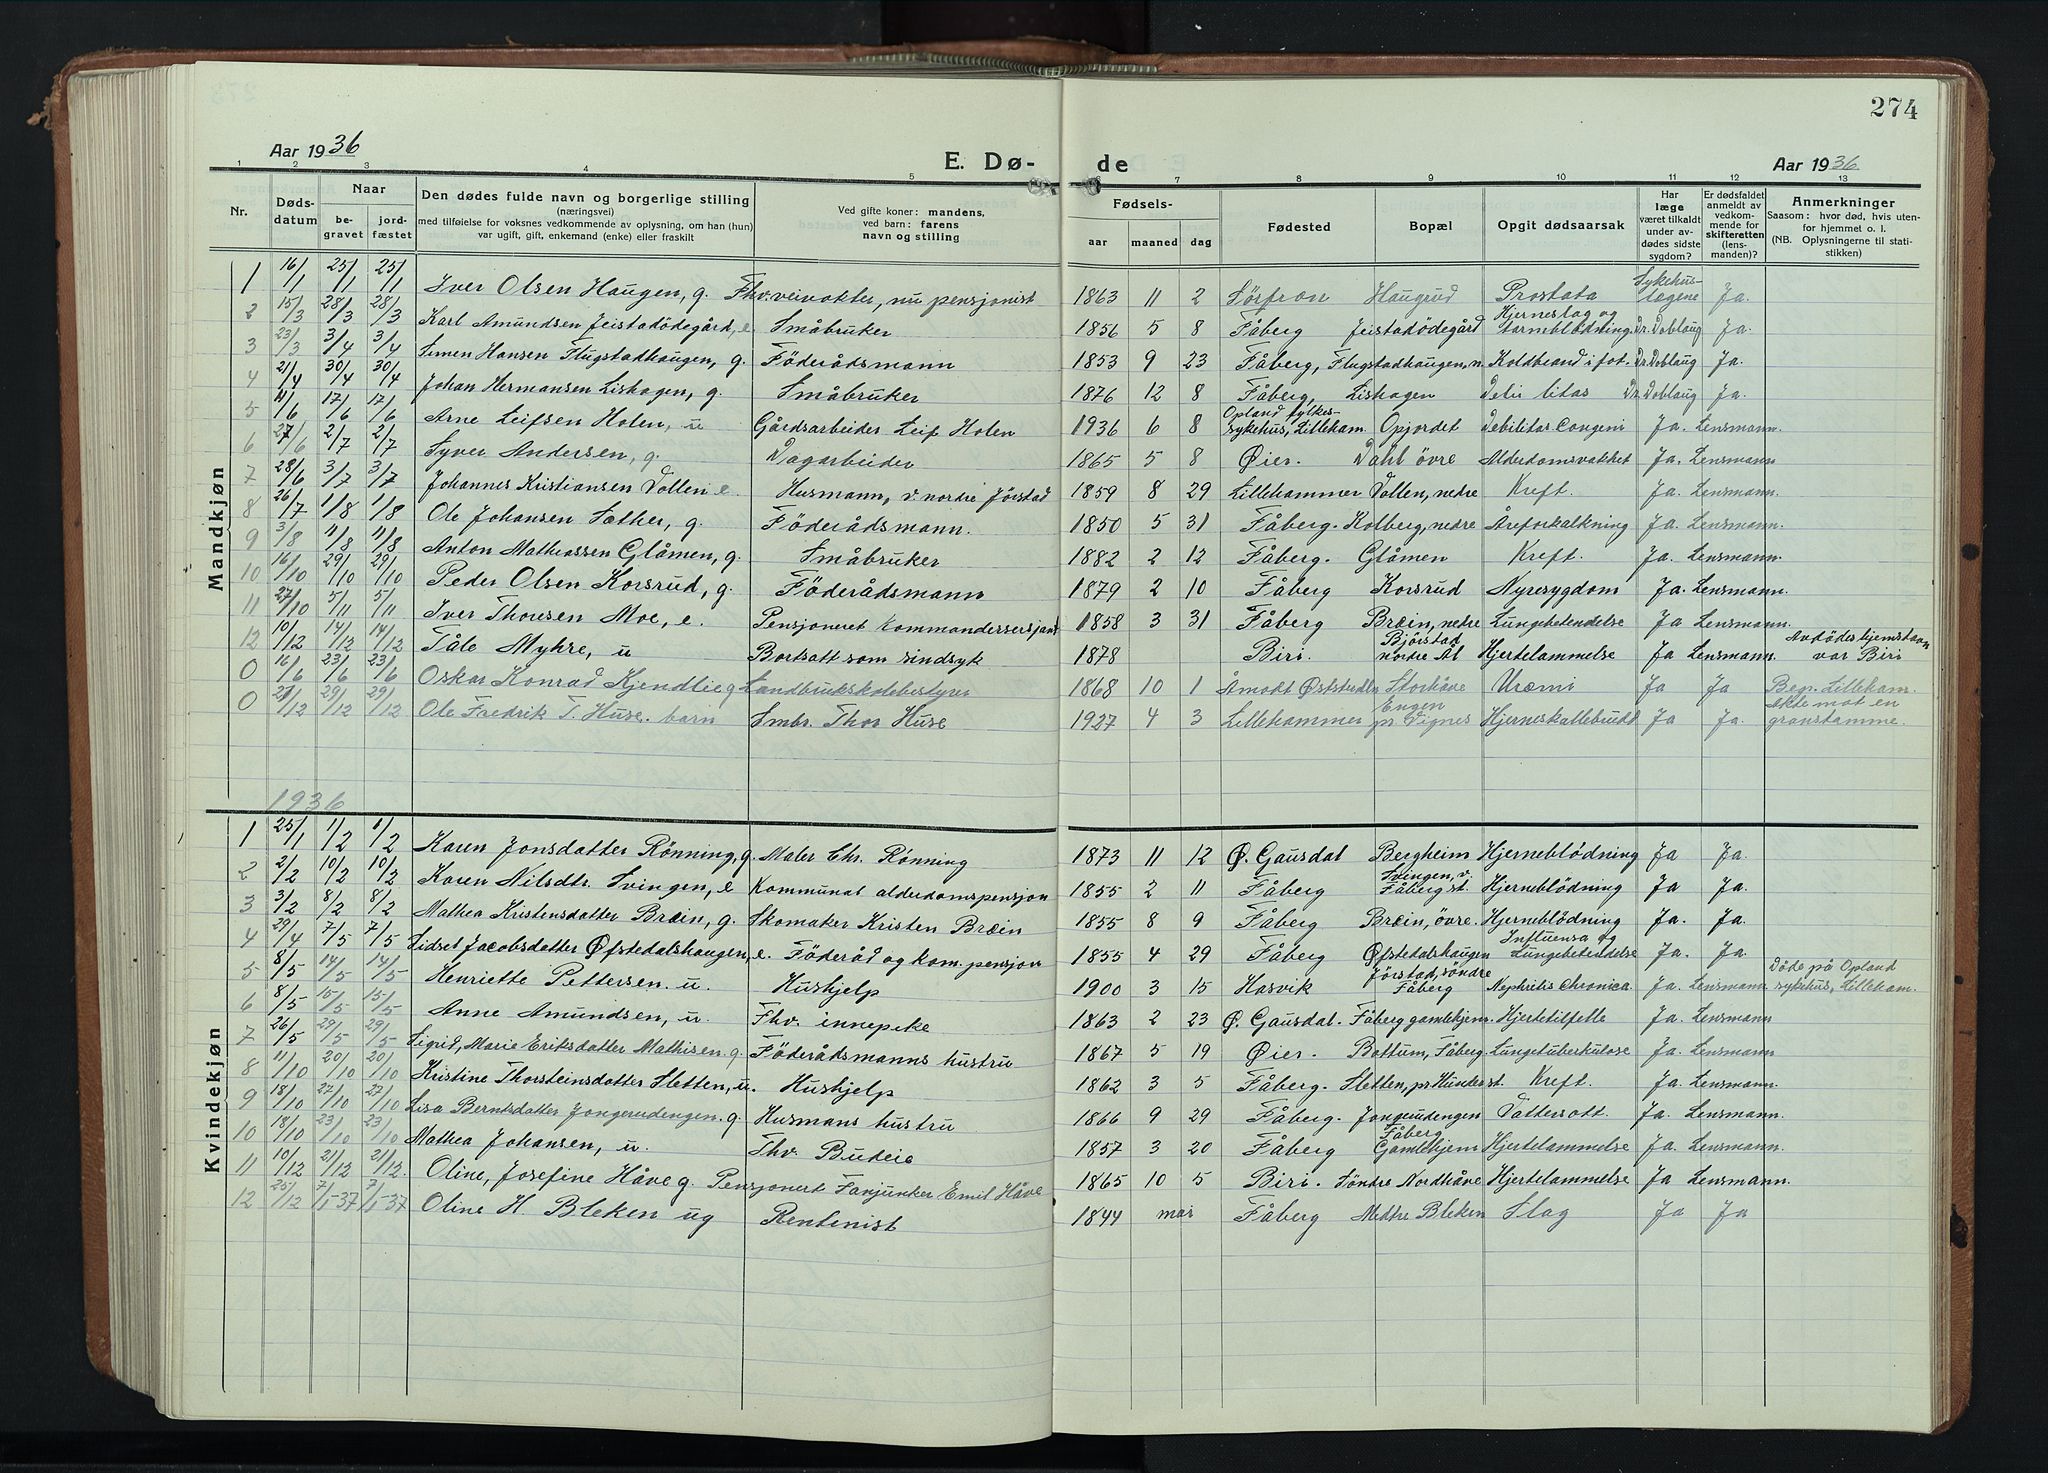 274
Aar 1936
E. Dø-
de
Aar 1936
1 2 3 4 5 6 7 8 9 10 11 12 13
Nr. Dødsdatum Naar begravet jordfæstet
Den dødes fulde navn og borgerlige stilling
(næringsvei)
med tilføielse for voksnes vedkommende av oplysning, om han (hun)
var ugift, gift, enkemand (enke) eller fraskilt
Ved gifte koner: mandens,
ved barn: farens
navn og stilling
Fødsels-
aar maaned dag
Fødested
Bopæl
Opgit dødsaarsak
Har
læge
været tilkaldt
under av-
dødes sidste
sygdom?
Er dødsfaldet
anmeldt av
vedkom-
mende for
skifteretten
(lens-
manden)?
Anmerkninger
Saasom: hvor død, hvis uten-
for hjemmet o. l.
(NB. Oplysningerne til stati-
stikken)
Mandkjøn
1 16/1 25/1 25/1 Iver Olsen Haugen, g. Fhv. veivokter, nu pensjonist 1863 11 2 Sörfron Haugrud Prostata Sykehuslægene Ja.
2 15/3 28/3 28/3 Karl Amundsen Jeistadödegård, e Småbruker 1856 5 8 Fåberg Jeistadödegård Hjerneslag og Dr. Doblaug Ja.
3 23/3 3/4 3/4 Simen Hansen Flugstadhaugen, g. Föderådsmann 1853 9 23 Fåberg, Flugstadhaugen, n. Koldbrand i fot. Dr. Doblaug Ja.
4 21/4 30/4 30/4 Johan Hermansen Lishagen, g. Småbruker 1876 12 8 Fåberg, Lishagen Debilitas Dr. Doblaug Ja.
5 11/6 17/6 17/6 Arne Leifsen Holen, u Gårdsarbeider Leif Holen 1936 6 8 Opland fylkessykehus, Lilleham. Opjordet Debilitas Congeni Ja. Lensmann.
6 27/6 2/7 2/7 Syver Andersen, g. Dagarbeider 1865 5 8 Øier. Dahl övre Alderdomsvakket Ja. Lensmann
7 28/6 3/7 3/7 Johannes Kristiansen Vollen e. Husmann, v. nordre Jörstad 1859 8 29 Lillehammer Vollen, nedre Kreft. Ja. Lensmann.
8 26/7 1/8 1/8 Ole Johansen Sæther, g. Föderådsmann. 1850 5 31 Fåberg. Kolberg, nedre Åreforkalkning Ja. Lensmann.
9 3/8 11/8 11/8 Anton Mathiassen Glåmen, g. Småbruker 1882 2 12 Fåberg. Glåmen Kreft. Ja. Lensmann.
10 16/10 29/10 29/10 Peder Olsen Korsrud, g. Föderådsmann 1879 2 10 Fåberg Korsrud Nyresygdom Ja. Lensmann.
11 27/10 5/11 5/11 Iver Thoresen Moe, e. Pensjoneret kommandersersjant 1858 3 31 Fåberg Bræin, nedre Lungebetendelse Ja. Lensmann.
12 10/12 14/12 14/12 Tåle Myhre, u Bortsatt som sindsyk 1878 Biri. Björstad nordre Ål Hjertelammelse Ja Lensmann. Avdödes hjemstavn var Biri
0 16/6 23/6 23/6 Oskar Konrad Kjendlie g. Landbrukskolebestyrer 1868 10 1 Åmodt Østerdalen Storhåve Uræmi Ja Ja Begr. Lilleham.
0 27/12 29/12 29/12 Ole Fredrik T. Huse. barn Smbr. Thor Huse 1927 4 3 Lillehammer Engen pr Vignes Hjerneskallebrudd Ja Ja. Akte mot en granstamme.
1936
Kvindekjøn
1 25/1 1/2 1/2 Karen Jonsdatter Rönning, g. Maler Chr. Rönning 1873 11 12 Ø. Gausdal Bergheim Hjerneblödning Ja Ja.
2 2/2 10/2 10/2 Karen Nilsdtr. Svingen, e Kommunal alderdomspensjon 1855 2 11 Fåberg Svingen, v. Fåberg st. Hjerneblödning Ja Ja.
3 3/2 8/2 8/2 Mathea Kristensdatter Bræin, g. Skomaker Kristen Bræin 1855 8 9 Fåberg Bræin, övre. Hjerneblödning Ja. Ja.
4 29/4 7/5 7/5 Sidsel Jacobsdatter Øfstedalshaugen, e. Föderåd og kom. pensjon 1855 4 29 Fåberg Øfstedalshaugen Influensa og Lungebetendelse Ja. Ja.
5 8/5 14/5 14/5 Henriette Pettersen. u. Hushjelp 1900 3 15 Hasvik Jörstad, söndre Fåberg Nephritis Chronica. Ja. Lensmann Döde på Opland sykehus, Lilleham.
6 8/5 15/5 15/5 Anne Amundsen, u. Fhv. innepike 1863 2 23 Ø. Gausdal. Fåberg gamlehjem. Hjertetilfelle Ja. Lensmann
7 26/5 29/5 29/5 Sigrid, Marie Eriksdatter Mathisen. g. Föderådsmanns hustru 1867 5 19 Øier. Bottum, Fåberg. Lungetuberkulose Ja. Lensmann
8 11/10 20/10 20/10 Kristine Thorsteinsdatter Sletten, u. Hushjelp 1862 3 5 Fåberg. Sletten, pr Hunder st. Kreft. Ja. Lensmann.
9 18/10 27/10 27/10 Lisa Berntsdatter Jongerudengen. g Husmans hustru 1866 9 29 Fåberg. Jongerudengen Vattersott. Ja. Lensmann.
10 18/10 23/10 23/10 Mathea Johansen, u. Fhv. Budeie 1857 3 20 Fåberg Fåberg Gamlehjem Hjertelammelse Ja. Lensmann.
11 10/12 21/12 21/12. Oline, Josefine Håve g. Pensjonert Fanjunker Emil Håve 1865 10 5 Biri. Söndre Nordhåve Hjertelammelse Ja Lensmann.
12 25/12 7/1 37 7/1 37 Oline H. Bleken ug Rentenist 1844 mai Fåberg Medtre Bleken Slag Ja Ja